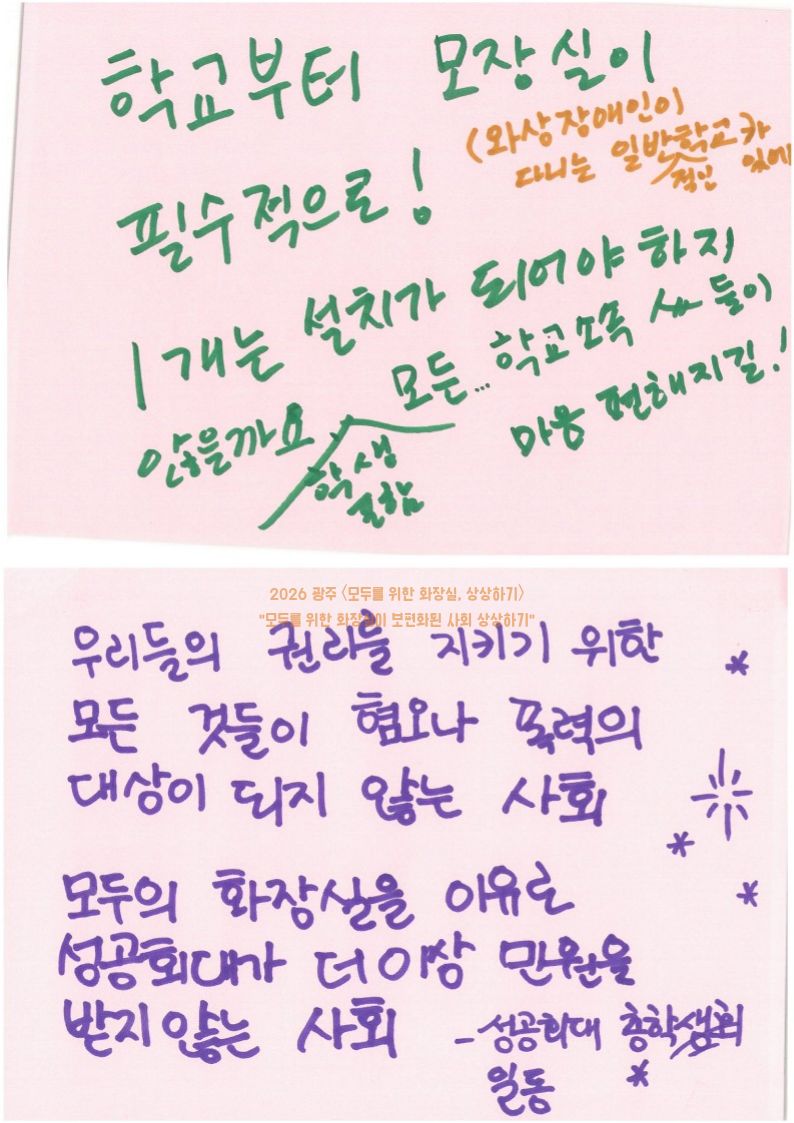 학교부터 모장실이
(와상장애인이
다니는 일반학교가
적인 있에
필수적으로!
1개는 설치가 되어야 하지
않을까요
학생
포함
모든... 학교 소속 들이
마음 편해지길!
2026 광주 〈모두를 위한 화장실, 상상하기〉
"모두를 위한 화장실이 보편화된 사회 상상하기"
우리들의 권리를 지키기 위한
모든 것들이 혐오나 폭력의
대상이 되지 않는 사회
모두의 화장실을 이유로
성공회대가 더 이상 민원을
받지 않는 사회
- 성공회대 총학생회
일동